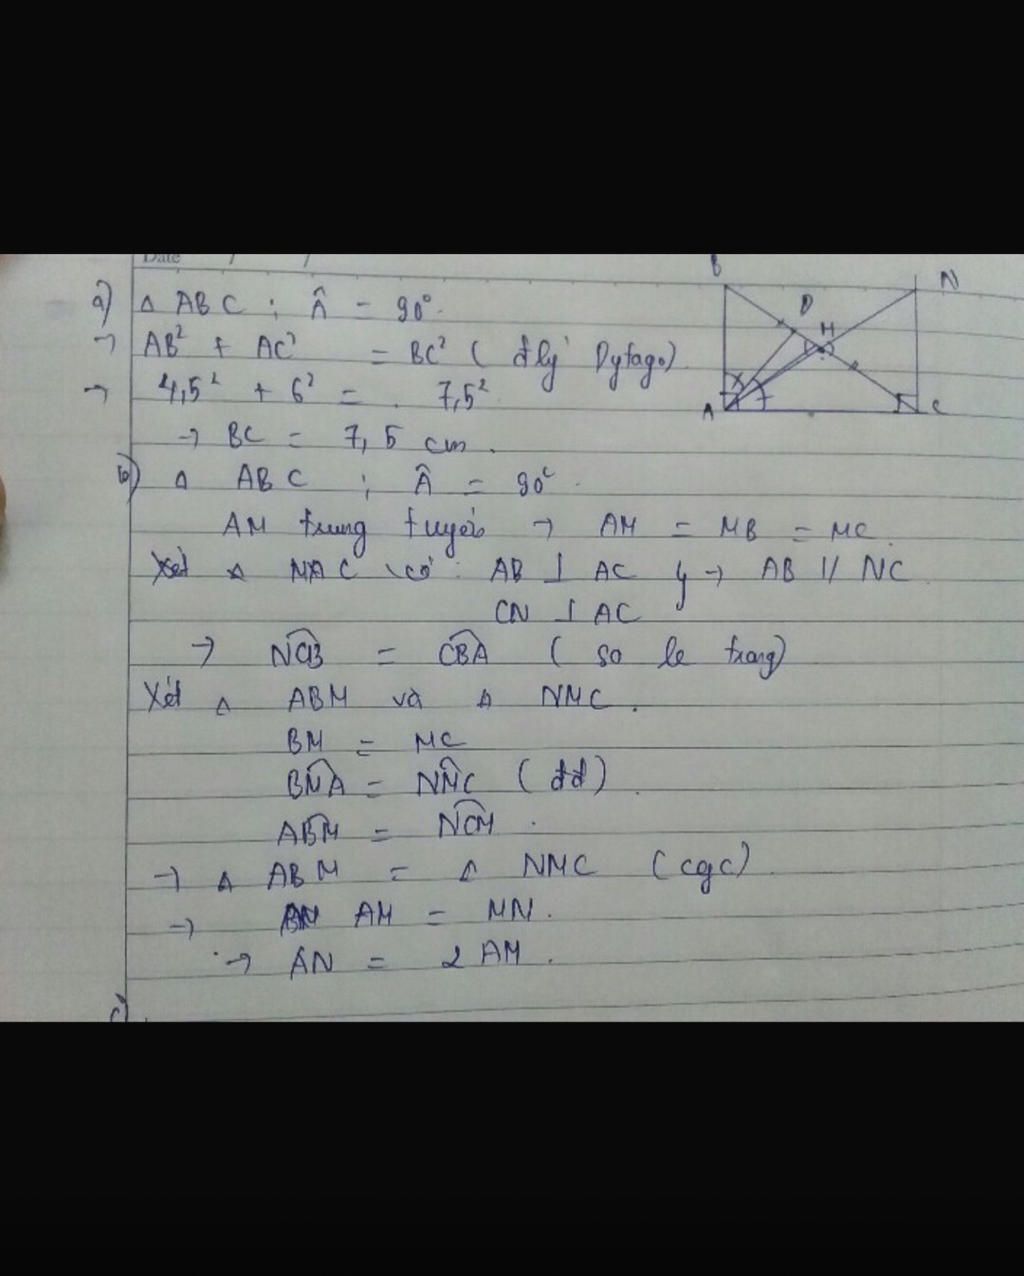 Date / /
a) Δ ABC ; Â = 90°.
→ AB² + AC² = BC² ( đlý Pytago)
→ 4,5² + 6² = 7,5²
→ BC = 7,5 cm.
b) Δ ABC ; Â = 90°.
AM trung tuyến → AM = MB = MC.
Xét Δ NAC có: AB ⊥ AC } → AB // NC
CN ⊥ AC
→ NCB = CBA ( so le trong)
Xét Δ ABM và Δ NMC.
BM = MC
BMA = NMC (đđ).
ABM = NCM.
→ Δ ABM = Δ NMC (cgc)
→ AM = MN.
→ AN = 2 AM.
c)
B
N
D
M
A
C